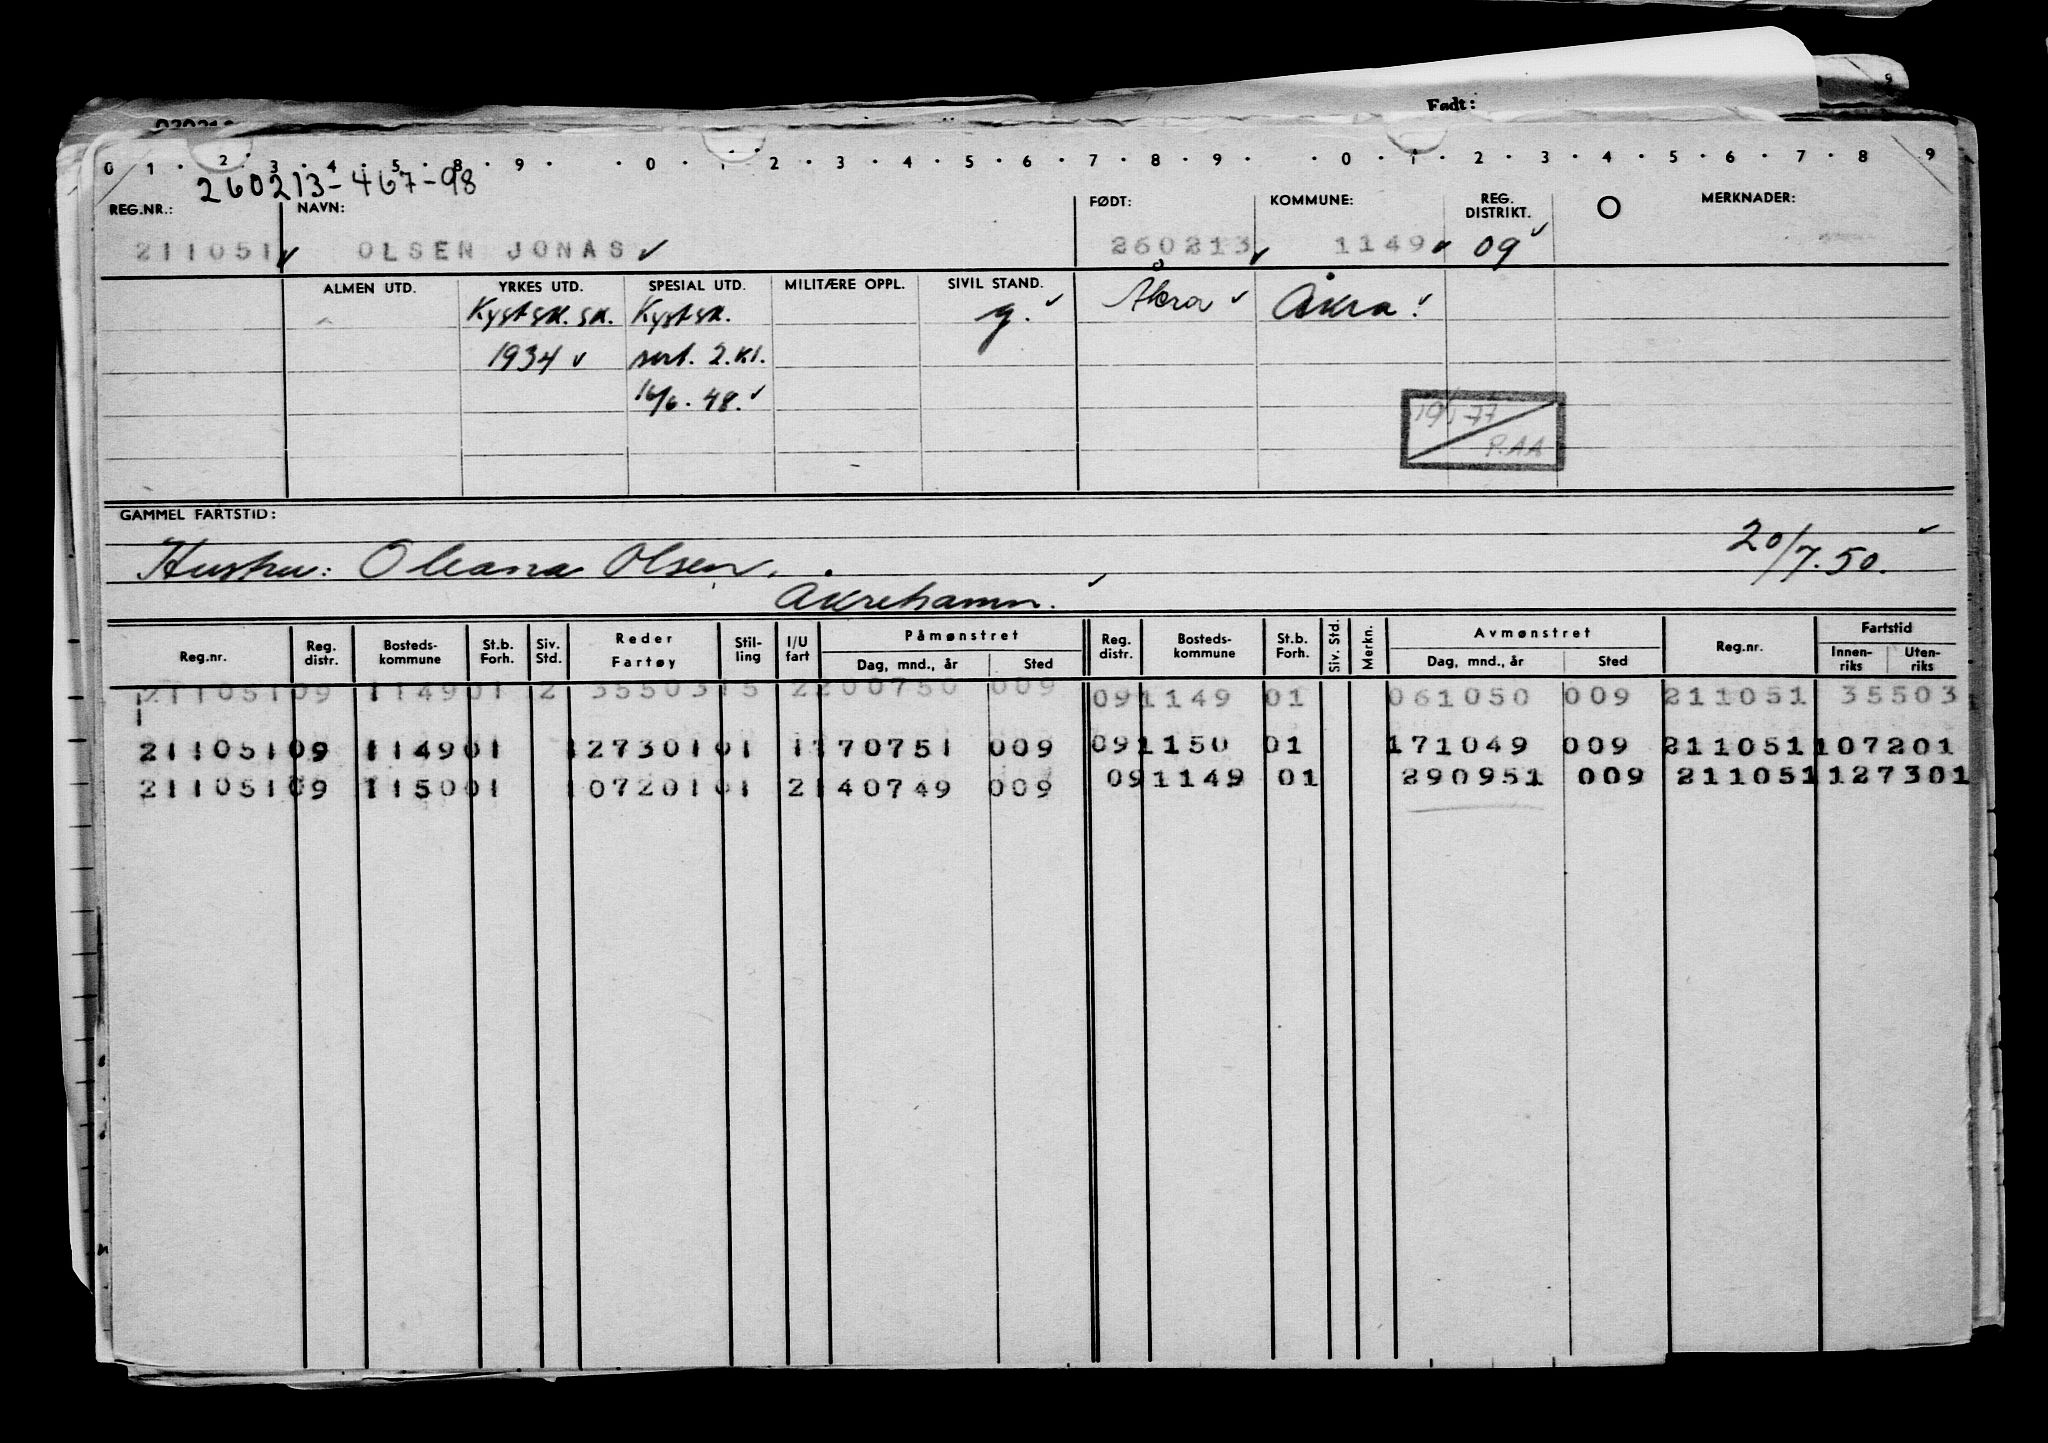 Født:
0 1 · 2 · 3 · 4 · 5 · 8 · 9 · · 0 · 1 · · 2 · 3 · 4 · 5 · 6 · 7 · 8 · 9 · · 0 · 1 · 2 · 3 · 4 · 5 · 6 · 7 · 8 · 9
260213-467-98
REG.NR.: NAVN: FØDT: KOMMUNE: REG. DISTRIKT. O MERKNADER:
211051 ✓ OLSEN JONAS ✓ 260213 ✓ 1149 ✓ 09 ✓
ALMEN UTD. YRKES UTD. SPESIAL UTD. MILITÆRE OPPL. SIVIL STAND.
Kystsk.sk. Kystsk. g. ✓ Åkra ✓ Åkra. ✓
1934 ✓ sert. 2.kl.
16/6. 48. ✓
P.AA
GAMMEL FARTSTID:
Hustru: Oleana Olsen, 20/7.50. ✓
Åkrehamn.
Reg.nr. Reg. distr. Bosteds-kommune St.b. Forh. Siv. Std. Reder Fartøy Stil-ling I/U fart Påmønstret Dag, mnd., år Sted Reg. distr. Bosteds-kommune St.b. Forh. Siv. Std. Merkn. Avmønstret Dag, mnd., år Sted Reg.nr. Fartstid Innen-riks Uten-riks
211051 09 1149 01 2 35503 15 2 200750 009 09 1149 01 061050 009 211051 35503
211051 09 1149 01 127301 01 1 170751 009 09 1150 01 171049 009 211051 107201
211051 09 1150 01 107201 01 2 140749 009 09 1149 01 290951 009 211051 127301